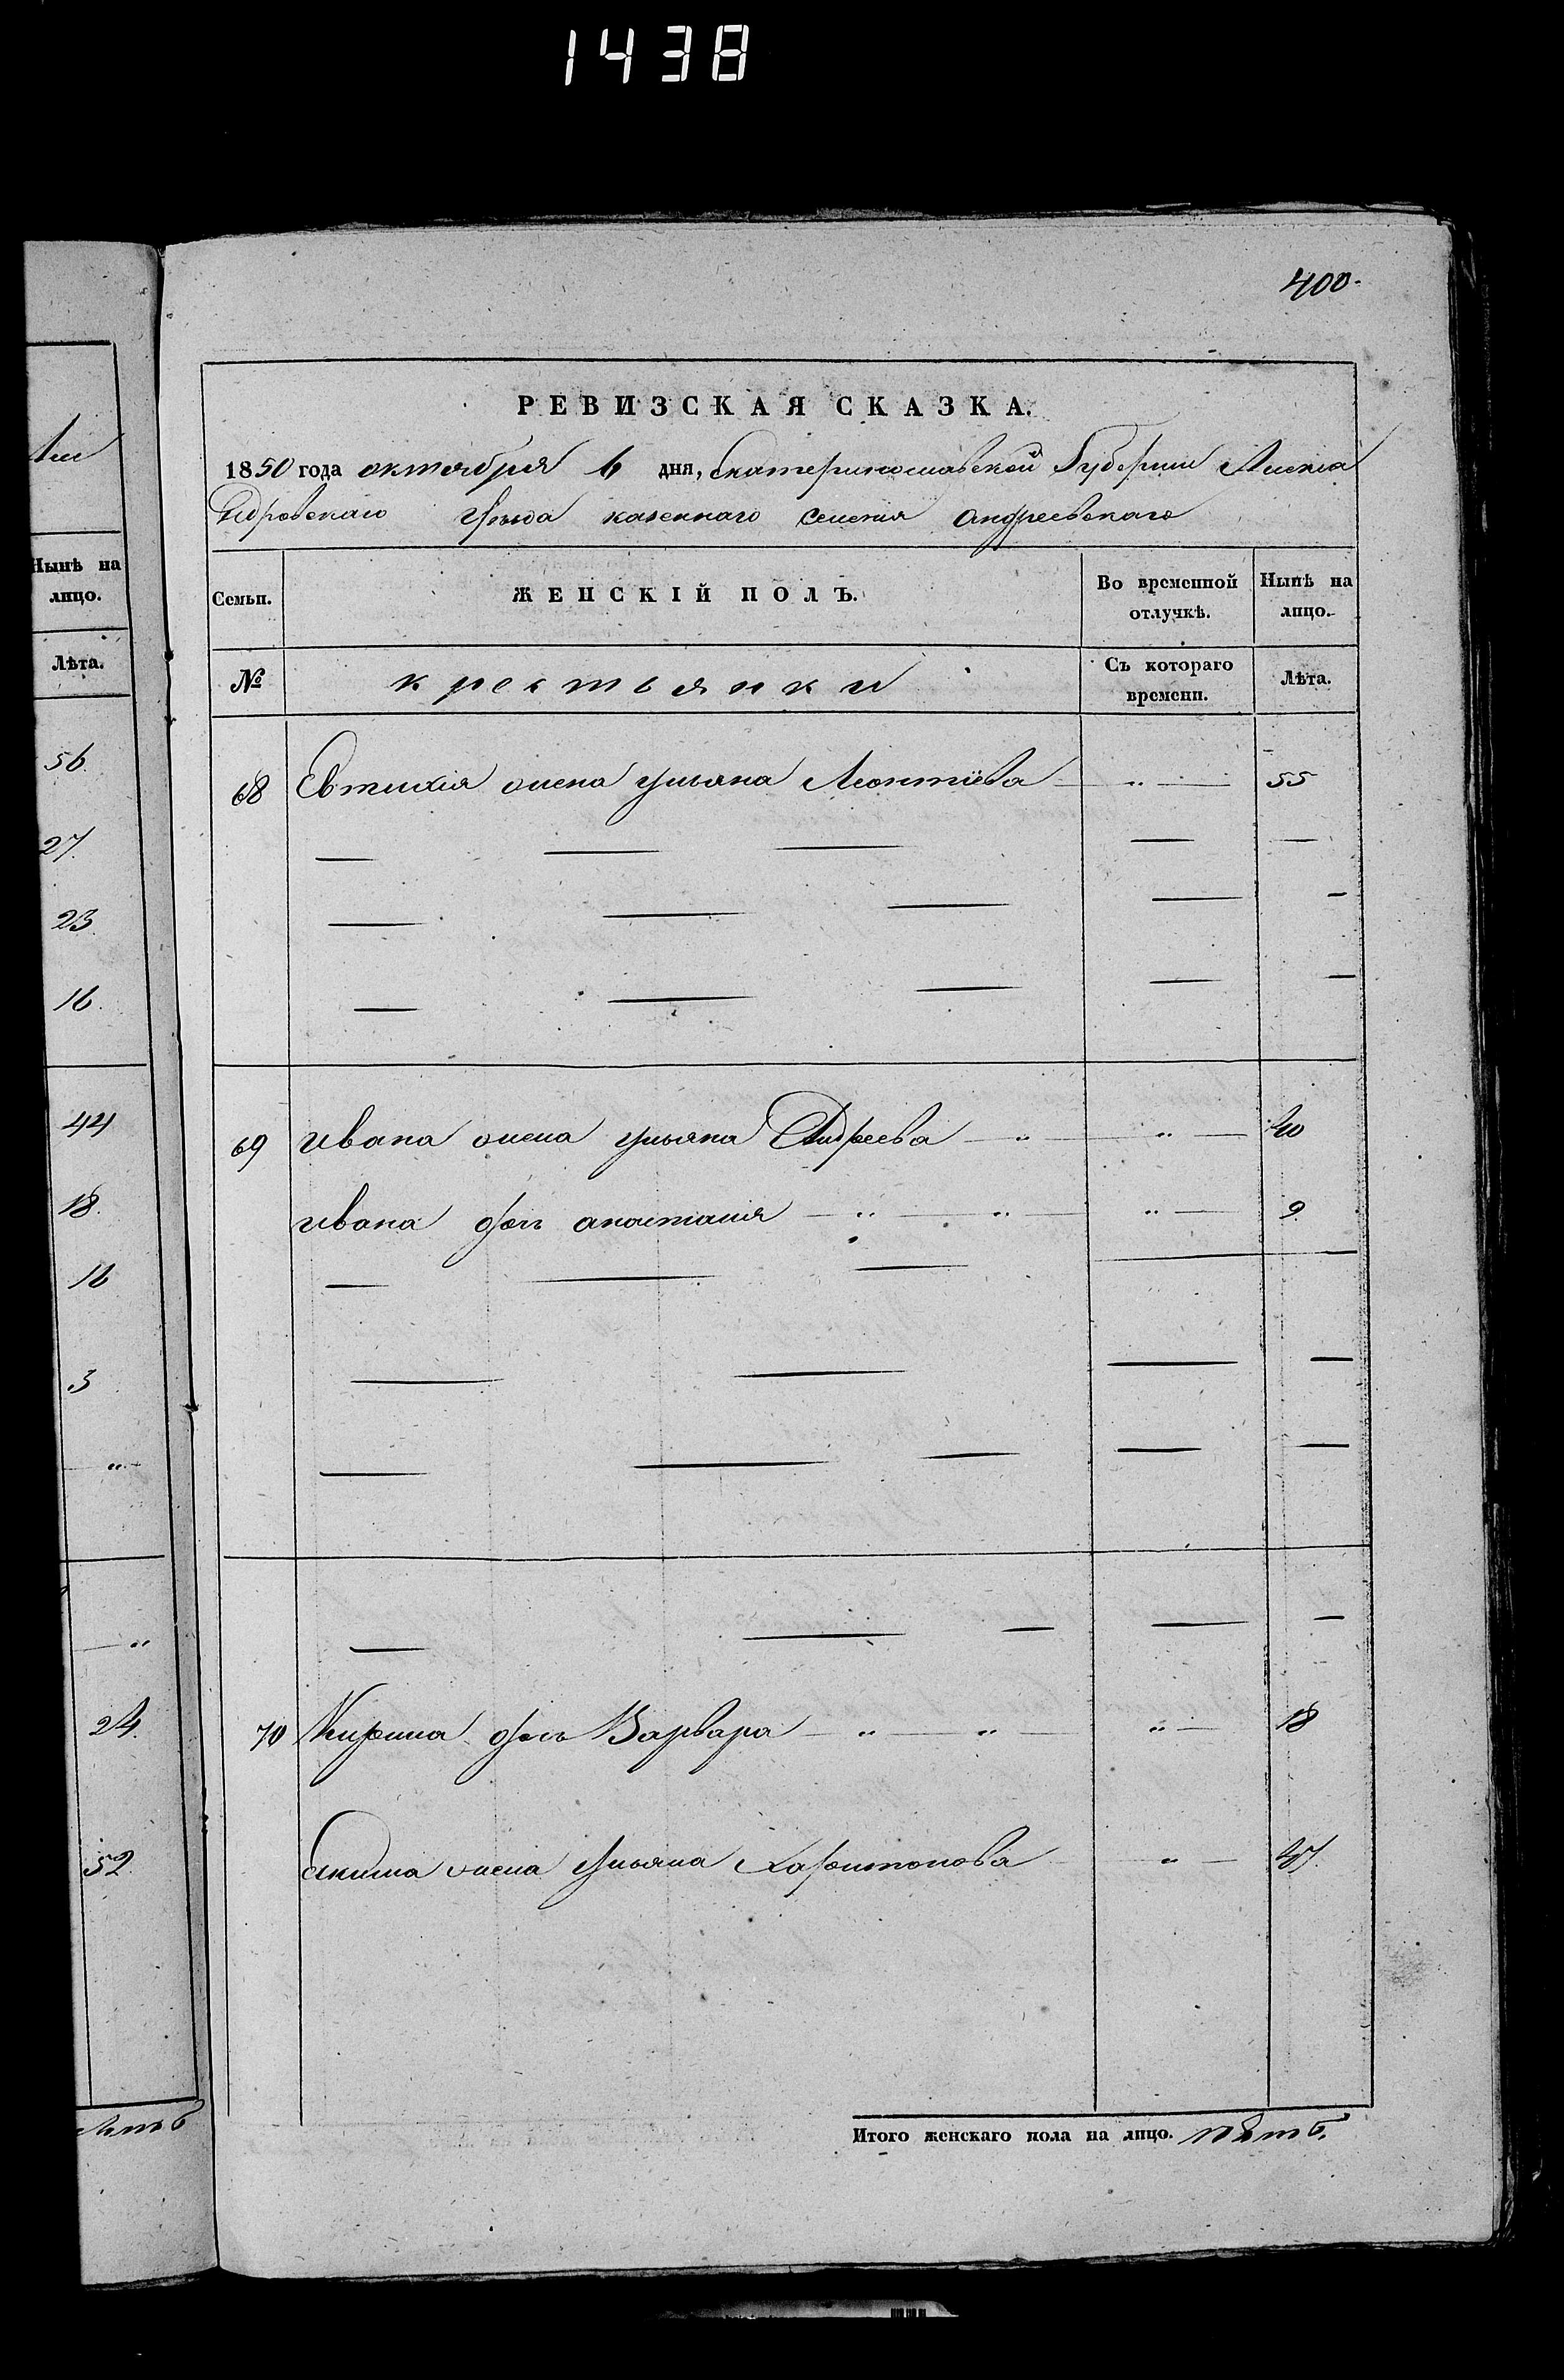 1438
400.
РЕВИЗСКАЯ СКАЗКА.
1850 года октября 6 дня, Екатеринославской Губернии Алекса
ндровскаго уѣзда казеннаго селенія Андреевскаго
Семьи. ЖЕНСКІЙ ПОЛЪ. Во временной отлучкѣ. Нынѣ на лицо.
№ крестьянки Съ котораго времени. Лѣта.
68 Евтихія жена ульяна Леонтіева — „ — 55
69 ивана жена ульяна Андреева — „ — „ — 40
ивана дочь анастасия — „ — „ — „ — 9
70 Кирина дочь Варвара — „ — „ — „ — 18
Екима жена Ульяна Харитонова — „ — 47.
Итого женскаго пола на лицо. пять.
Нынѣ на
лицо.
Лѣта.
56.
27.
23.
16.
44
18.
16
3
„
„
24.
52.